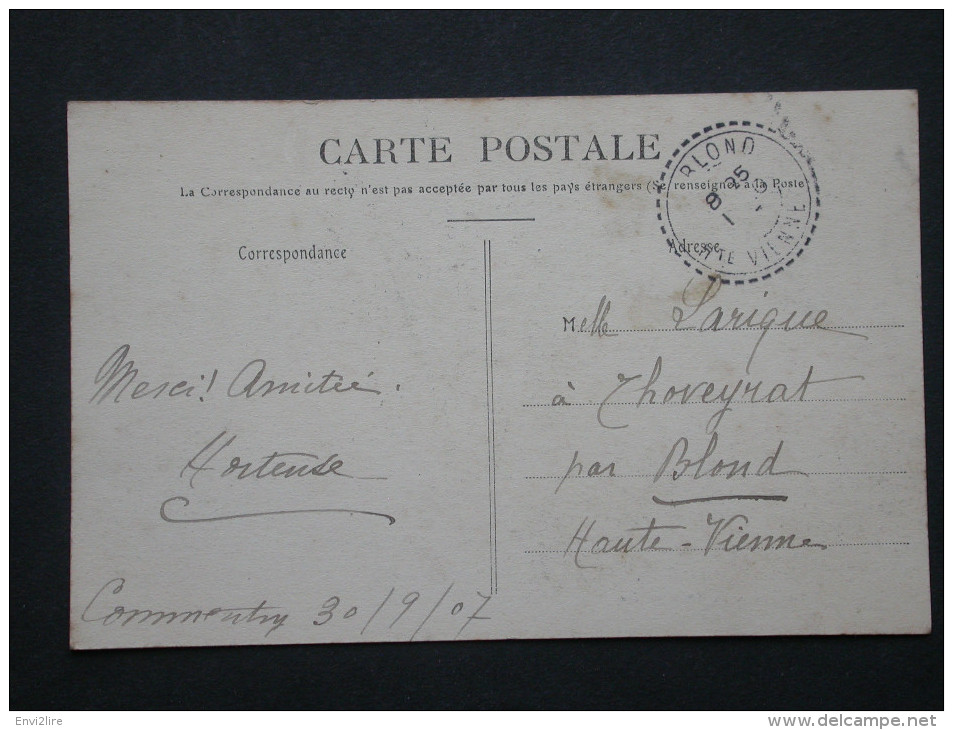 CARTE POSTALE
La Correspondance au recto n'est pas acceptée par tous les pays étrangers (Se renseigner à la Poste
BLOND
8 25
1
HTE VIENNE
Correspondance
Adresse
Melle Larigue
à Thoveyrat
par Blond
Haute-Vienne
Merci! Amitié.
Hortense
Commentry 30/9/07
Envi2lire
www.delcampe.net